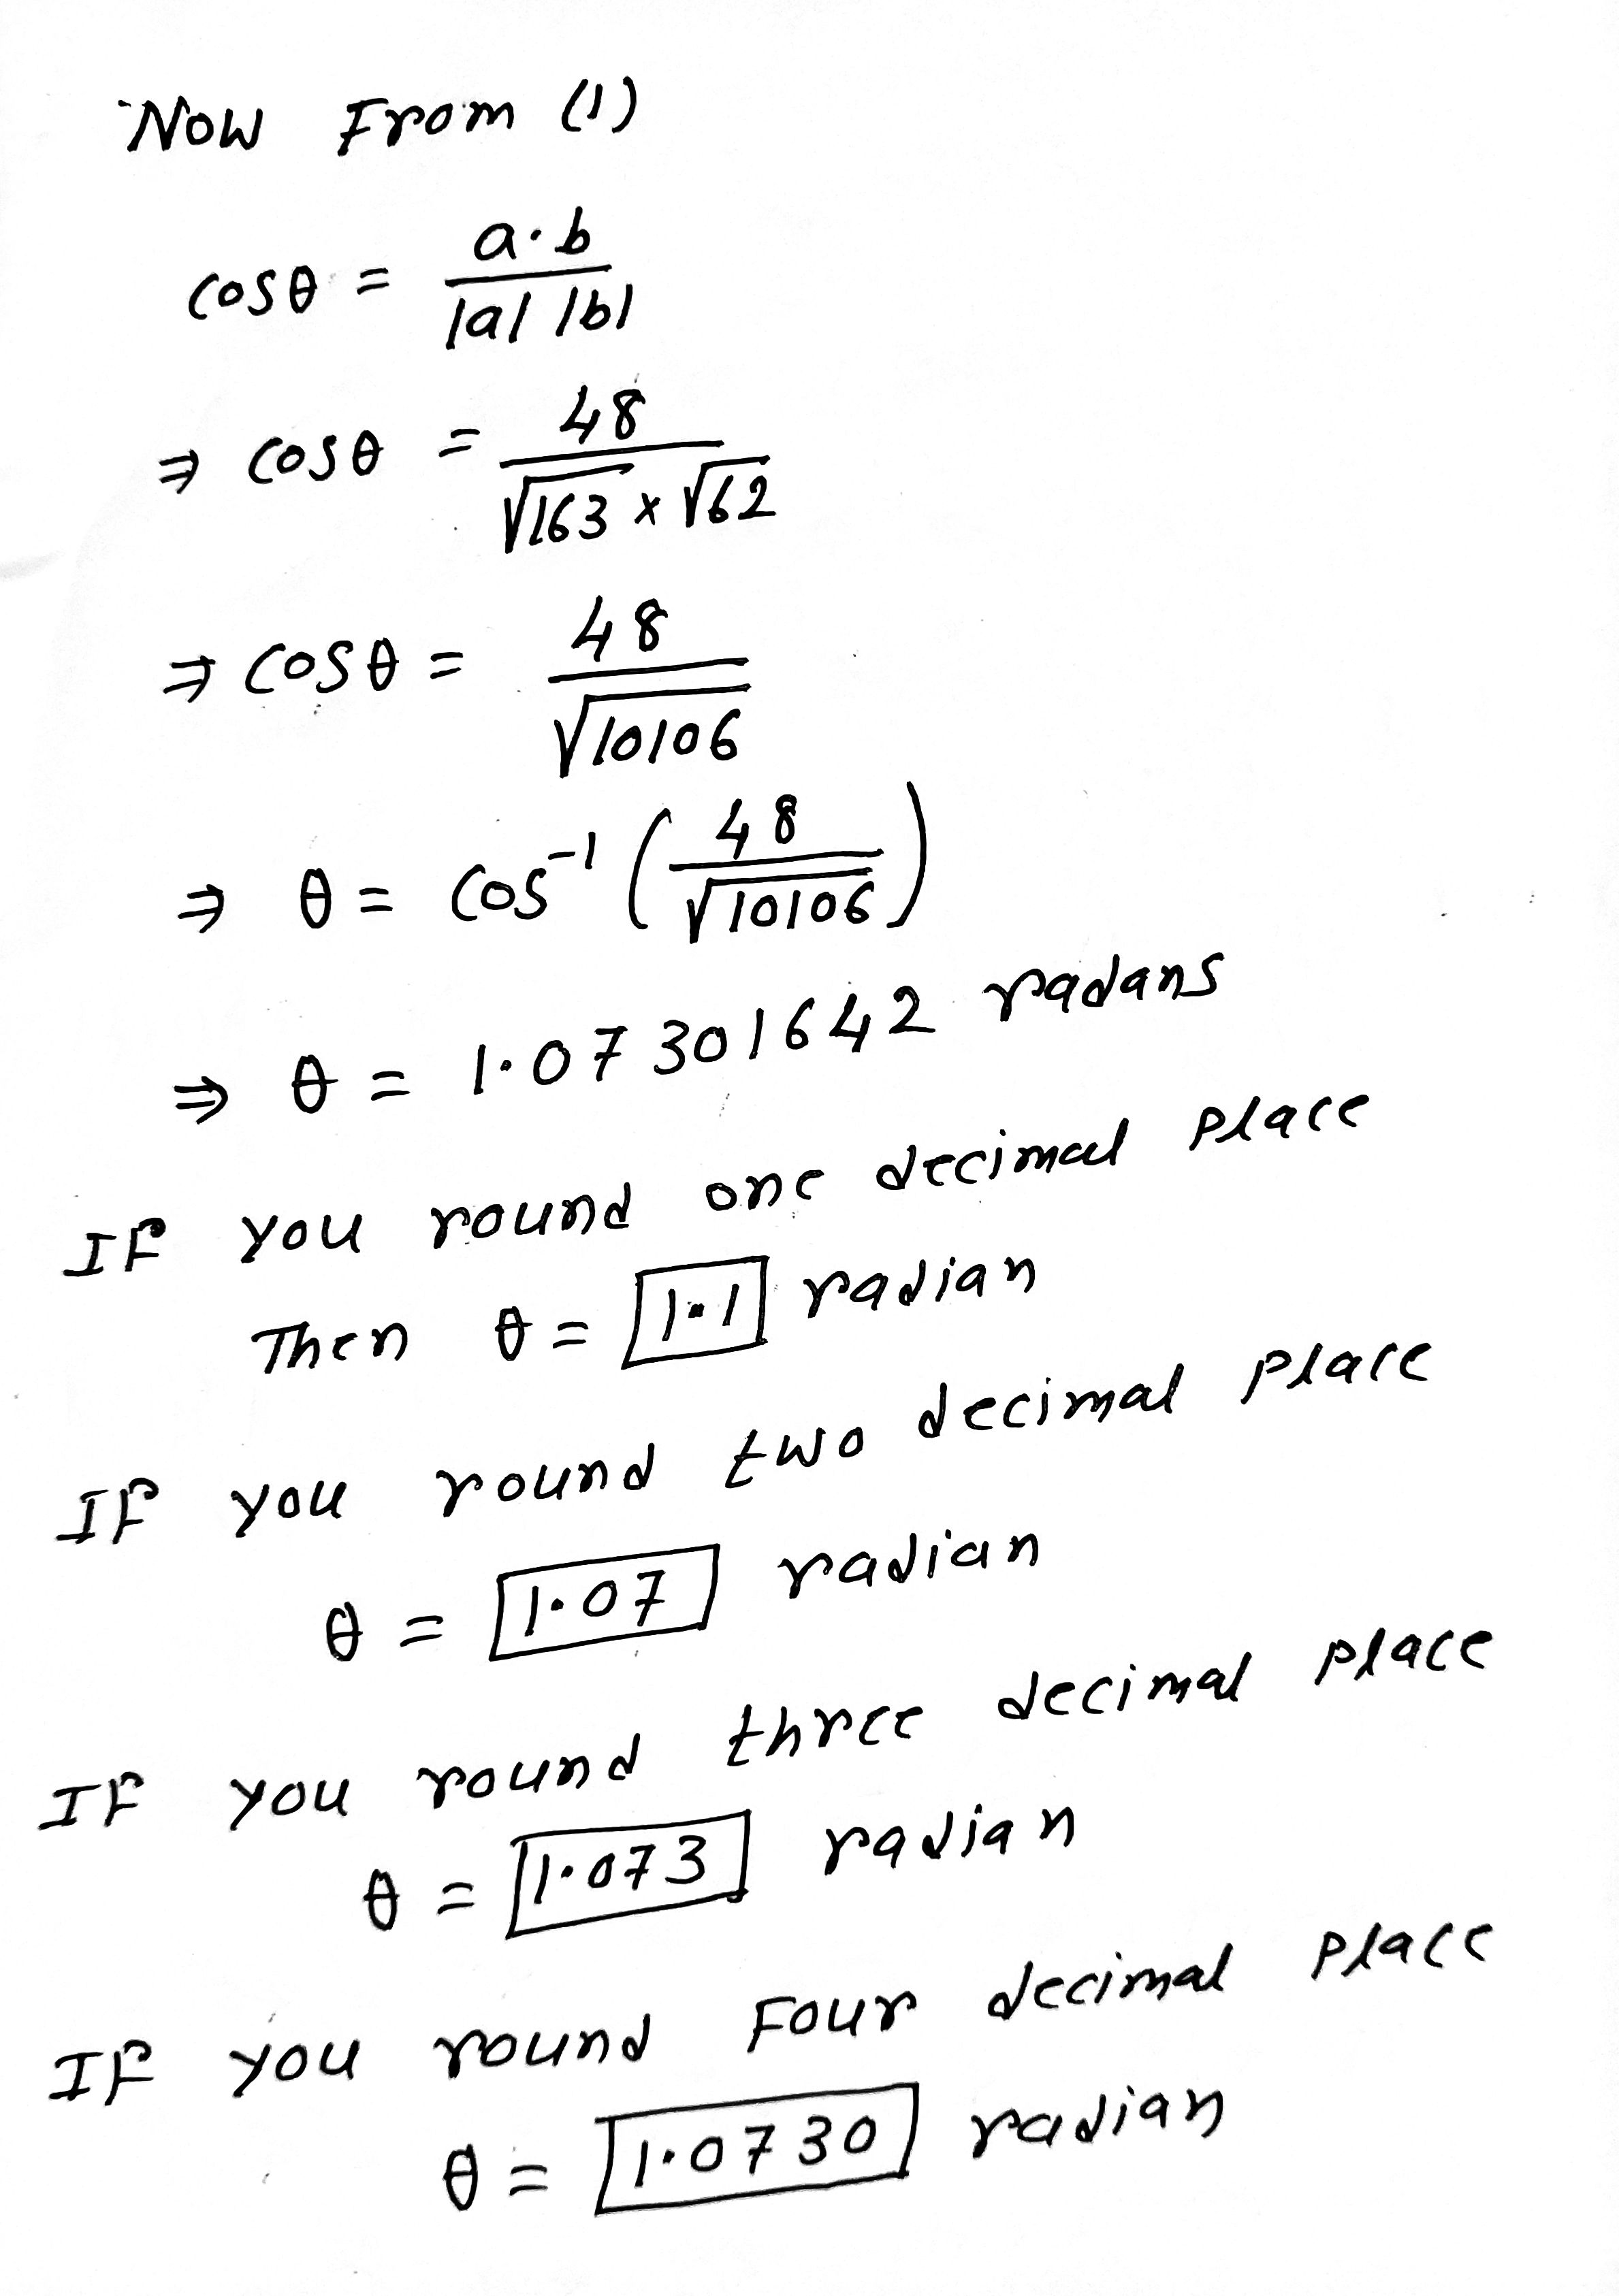 Now From (1)
cosθ = a·b / |a| |b|
⇒ cosθ = 48 / √163 × √62
⇒ cosθ = 48 / √10106
⇒ θ = cos⁻¹ (48 / √10106)
⇒ θ = 1.07301642 radans
If you round one decimal place
Then θ = 1.1 radian
If you round two decimal place
θ = 1.07 radian
If you round three decimal place
θ = 1.073 radian
If you round Four decimal place
θ = 1.0730 radian